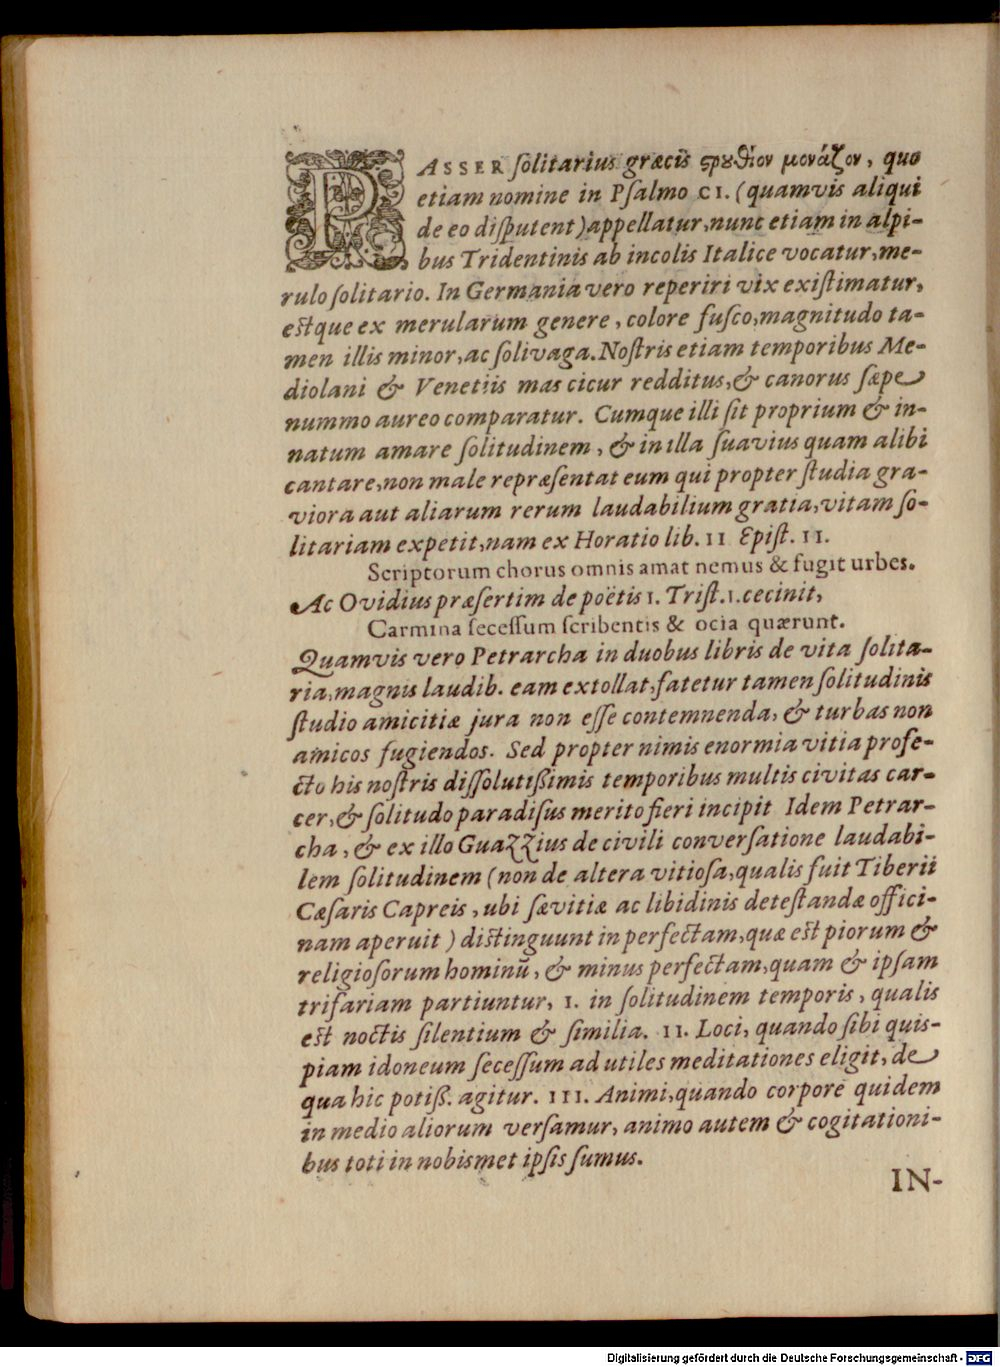 PASSER ſolitarius græcis ϛρȣθίον μονάζον, quo
etiam nomine in Pſalmo CI. (quamvis aliqui
de eo diſputent) appellatur, nunc etiam in alpi-
bus Tridentinis ab incolis Italice vocatur, me-
rulo ſolitario. In Germania vero reperiri vix exiſtimatur,
eſtque ex merularum genere, colore fuſco, magnitudo ta-
men illis minor, ac ſolivaga. Noſtris etiam temporibus Me-
diolani & Venetiis mas cicur redditus, & canorus ſæpe
nummo aureo comparatur. Cumque illi ſit proprium & in-
natum amare ſolitudinem, & in illa ſuavius quam alibi
cantare, non male repræſentat eum qui propter ſtudia gra-
viora aut aliarum rerum laudabilium gratia, vitam ſo-
litariam expetit, nam ex Horatio lib. II Epiſt. II.
Scriptorum chorus omnis amat nemus & fugit urbes.
Ac Ovidius præſertim de poëtis 1. Triſt. 1. cecinit,
Carmina ſeceſſum ſcribentis & ocia quærunt.
Quamvis vero Petrarcha in duobus libris de vita ſolita-
ria, magnis laudib. eam extollat, fatetur tamen ſolitudinis
ſtudio amicitiæ jura non eſſe contemnenda, & turbas non
amicos fugiendos. Sed propter nimis enormia vitia profe-
cto his noſtris diſſolutißimis temporibus multis civitas car-
cer, & ſolitudo paradiſus merito fieri incipit Idem Petrar-
cha, & ex illo Guazzius de civili converſatione laudabi-
lem ſolitudinem (non de altera vitioſa, qualis fuit Tiberii
Cæſaris Capreis, ubi ſævitiæ ac libidinis deteſtandæ offici-
nam aperuit) diſtinguunt in perfectam, quæ eſt piorum &
religioſorum hominū, & minus perfectam, quam & ipſam
trifariam partiuntur, I. in ſolitudinem temporis, qualis
eſt noctis ſilentium & ſimilia. II. Loci, quando ſibi quis-
piam idoneum ſeceſſum ad utiles meditationes eligit, de
qua hic potiß. agitur. III. Animi, quando corpore quidem
in medio aliorum verſamur, animo autem & cogitationi-
bus toti in nobismet ipſis ſumus.
IN-
Digitalisierung gefördert durch die Deutsche Forschungsgemeinschaft - DFG